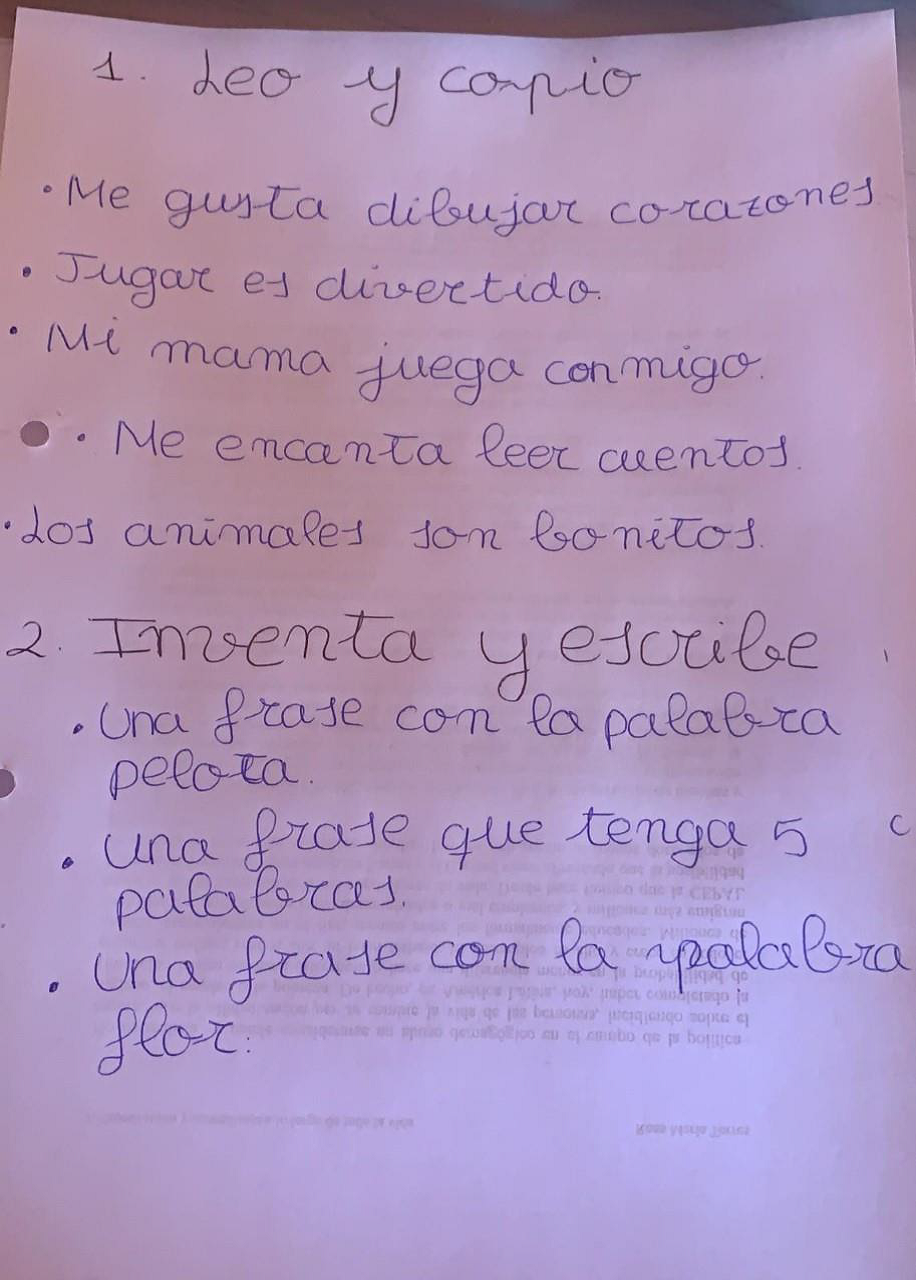 1. Leo y copio
· Me gusta dibujar corazones
· Jugar es divertido.
· Mi mama juega conmigo.
· Me encanta leer cuentos.
· Los animales son bonitos.
2. Inventa y escribe
. Una frase con la palabra
pelota.
. Una frase que tenga 5
palabras.
. Una frase con la palabra
flor.